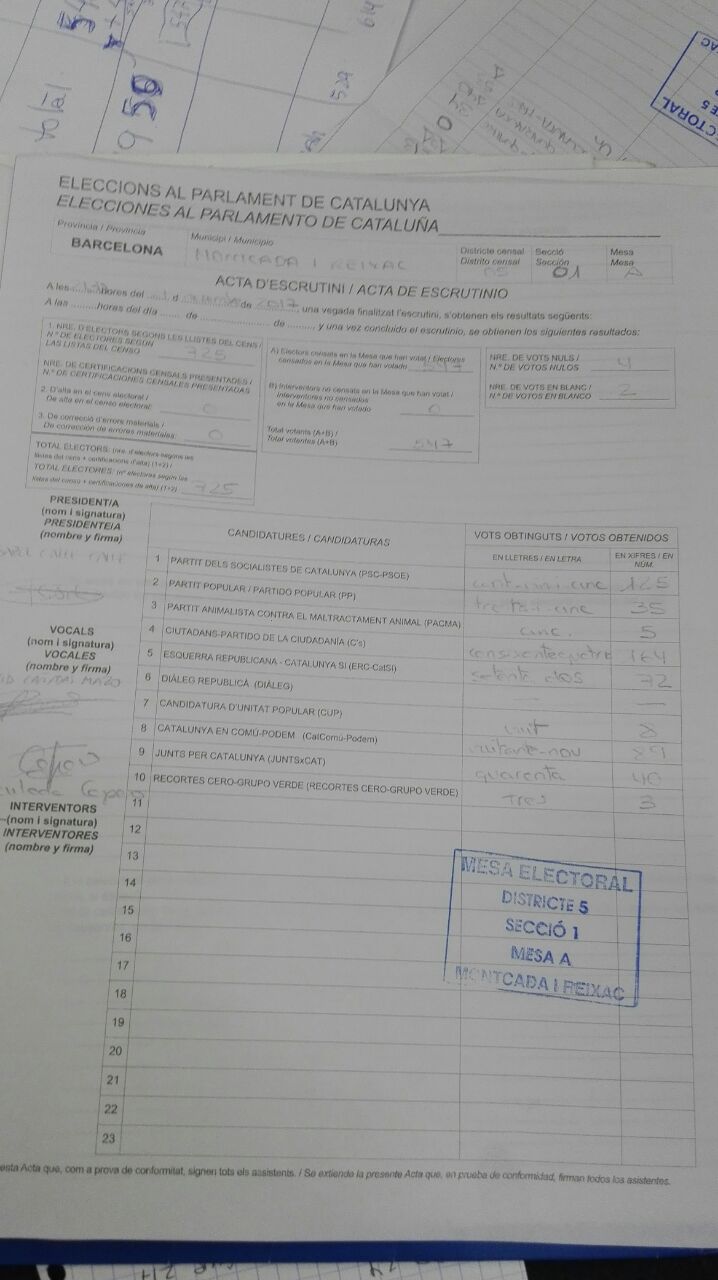 ELECCIONS AL PARLAMENT DE CATALUNYA
ELECCIONES AL PARLAMENTO DE CATALUÑA
Província / Provincia
BARCELONA
Municipi / Municipio
MONTCADA I REIXAC
Districte censal
Distrito censal
05
Secció
Sección
01
Mesa
Mesa
A
ACTA D'ESCRUTINI / ACTA DE ESCRUTINIO
A les hores del d de 2017, una vegada finalitzat l'escrutini, s'obtenen els resultats següents:
A las ......... horas del día ........ de ........................ de .......... y una vez concluido el escrutinio, se obtienen los siguientes resultados:
1. NRE. D'ELECTORS SEGONS LES LLISTES DEL CENS /
N.º DE ELECTORES SEGÚN
LAS LISTAS DEL CENSO 725
NRE. DE CERTIFICACIONS CENSALS PRESENTADES /
N.º DE CERTIFICACIONES CENSALES PRESENTADAS
2. D'alta en el cens electoral /
De alta en el censo electoral: 0
3. De correcció d'errors materials /
De corrección de errores materiales: 0
TOTAL ELECTORS: (nre. d'electors segons les
llistes del cens + certificacions d'alta) (1+2) /
TOTAL ELECTORES: (nº electores según las
listas del censo + certificaciones de alta) (1+2) 725
A) Electors censats en la Mesa que han votat / Electores
censados en la Mesa que han votado 547
B) Interventors no censats en la Mesa que han votat /
Interventores no censados
en la Mesa que han votado 0
Total votants (A+B) /
Total votantes (A+B) 547
NRE. DE VOTS NULS /
N.º DE VOTOS NULOS 4
NRE. DE VOTS EN BLANC /
N.º DE VOTOS EN BLANCO 2
PRESIDENT/A
(nom i signatura)
PRESIDENTE/A
(nombre y firma)
VOCALS
(nom i signatura)
VOCALES
(nombre y firma)
INTERVENTORS
(nom i signatura)
INTERVENTORES
(nombre y firma)
CANDIDATURES / CANDIDATURAS
VOTS OBTINGUTS / VOTOS OBTENIDOS
EN LLETRES / EN LETRA
EN XIFRES / EN NÚM.
1 PARTIT DELS SOCIALISTES DE CATALUNYA (PSC-PSOE) 125
2 PARTIT POPULAR / PARTIDO POPULAR (PP) 35
3 PARTIT ANIMALISTA CONTRA EL MALTRACTAMENT ANIMAL (PACMA) cinc. 5
4 CIUTADANS-PARTIDO DE LA CIUDADANÍA (C's) 164
5 ESQUERRA REPUBLICANA - CATALUNYA SÍ (ERC-CatSí) setanta dos 72
6 DIÀLEG REPUBLICÀ (DIÀLEG) — —
7 CANDIDATURA D'UNITAT POPULAR (CUP) vuit 8
8 CATALUNYA EN COMÚ-PODEM (CatComú-Podem) vuitanta-nou 89
9 JUNTS PER CATALUNYA (JUNTSxCAT) quaranta 40
10 RECORTES CERO-GRUPO VERDE (RECORTES CERO-GRUPO VERDE) Tres 3
11
12
13
14
15
16
17
18
19
20
21
22
23
MESA ELECTORAL
DISTRICTE 5
SECCIÓ 1
MESA A
MONTCADA I REIXAC
esta Acta que, com a prova de conformitat, signen tots els assistents. / Se extiende la presente Acta que, en prueba de conformidad, firman todos los asistentes.